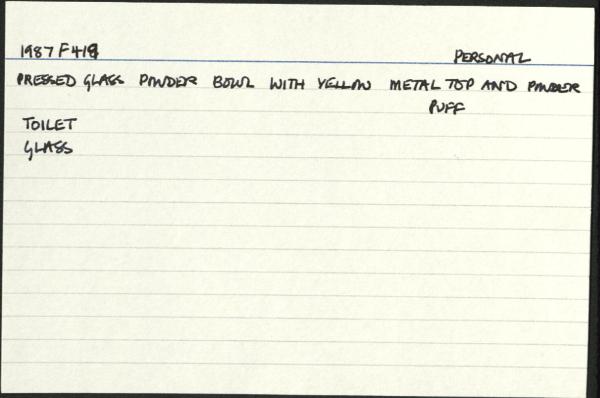 1987 F 418 PERSONAL
PRESSED GLASS POWDER BOWL WITH YELLOW METAL TOP AND POWDER
PUFF
TOILET
GLASS